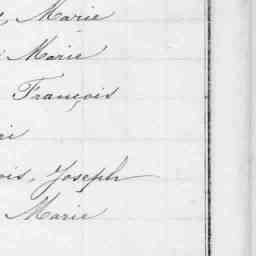 Marie
Marie
François
Joseph
Marie